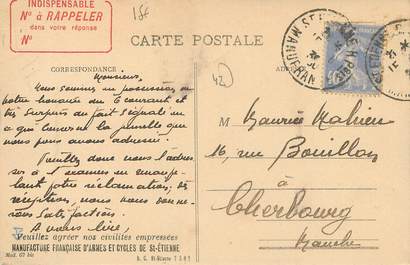 INDISPENSABLE
Nº à RAPPELER
dans votre réponse
Nº
15f
CARTE POSTALE
42
CORRESPONDANCE
Monsieur,
Nous sommes en possession de
votre honorée du 6 courant et
très surpris du fait signalé
a que concerne la que
nous vous avons adressée.
Veuillez donc nous l'adres
ser à l'examen en nous
lant votre réclamation, dès
réception, nous vous don
nerons satisfaction.
A vous lire,
Veuillez agréer nos civilités empressées
MANUFACTURE FRANÇAISE D'ARMES ET CYCLES DE St-ÉTIENNE
Mod. 67 bis
R. C. St-Etienne
M Maurice Mahieu
16, rue Bouillon
à
Cherbourg
Manche